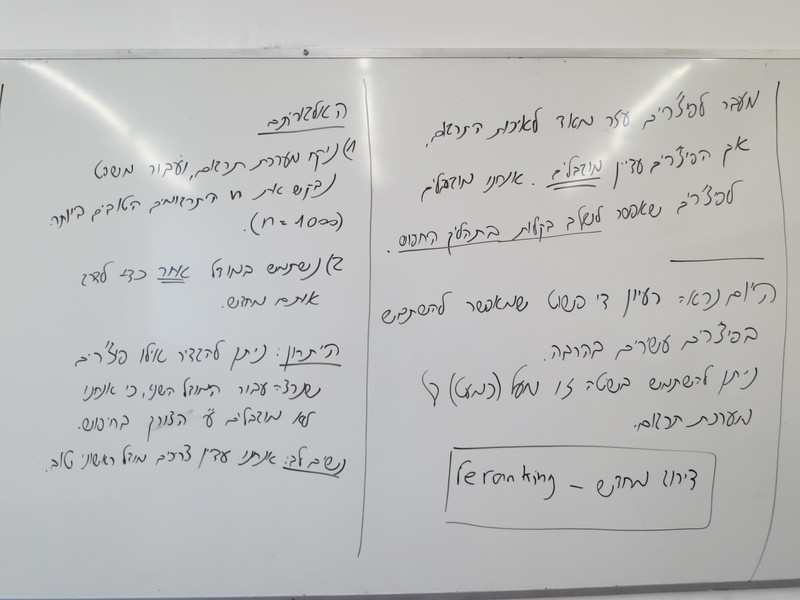 מעבר לפיצ'רים עזר מאוד לאיכות התרגום,
אך הפיצ'רים עדיין מוגבלים. אנחנו מוגבלים
לפיצ'רים שאפשר לשלב בקלות בתהליך החיפוש.
היום נראה רעיון די פשוט שמאפשר להשתמש
בפיצ'רים עשירים בהרבה.
ניתן להשתמש בשיטה זו מעל (כמעט) כל
מערכת תרגום.
דירוג מחדש – reranking
האלגוריתם
1) ניקח מערכת תרגום, ועבור משפט
נבקש את n התרגומים הטובים ביותר.
(n = 1000).
2) נשתמש במודל אחר כדי לדרג
אותם מחדש.
היתרון: ניתן להגדיר אילו פיצ'רים
שנרצה עבור המודל השני, כי אנחנו
לא מוגבלים ע"י הצורך בחיפוש.
נשים לב: אנחנו עדיין צריכים מודל ראשוני טוב.